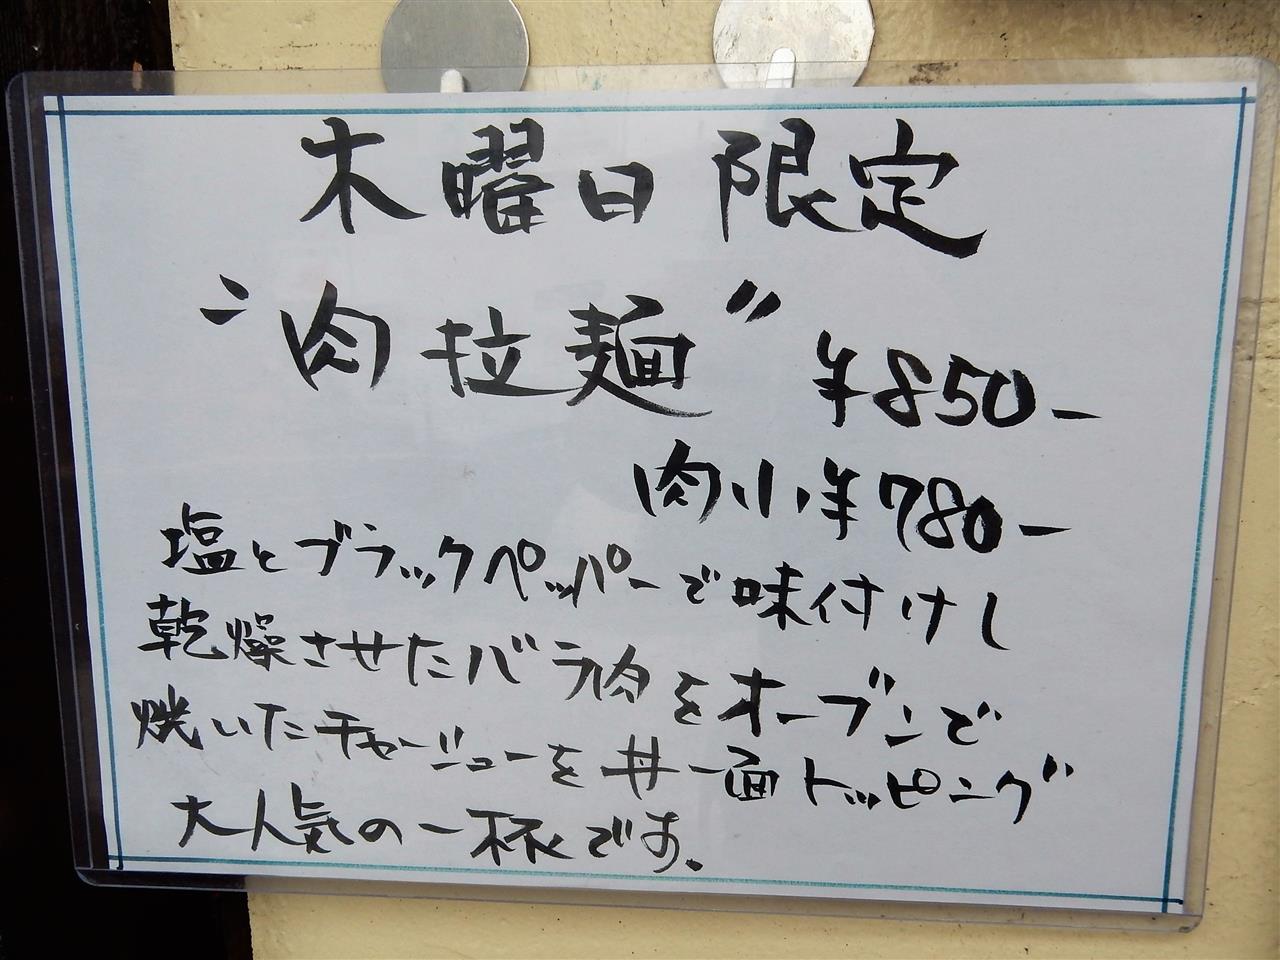 木曜日限定
"肉拉麺" ¥850-
肉小¥780-
塩とブラックペッパーで味付けし
乾燥させたバラ肉をオーブンで
焼いたチャーシューを丼一面トッピング
大人気の一杯です。